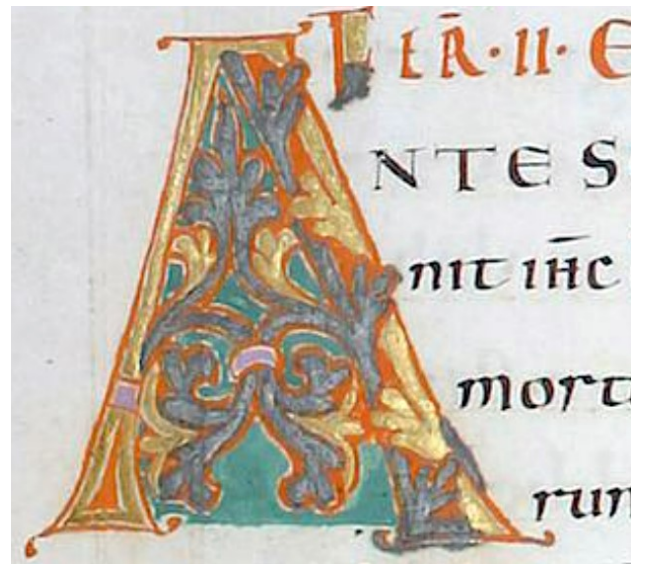 FER̄·II·E
ANTE S
nit ih̄c
mort
ru